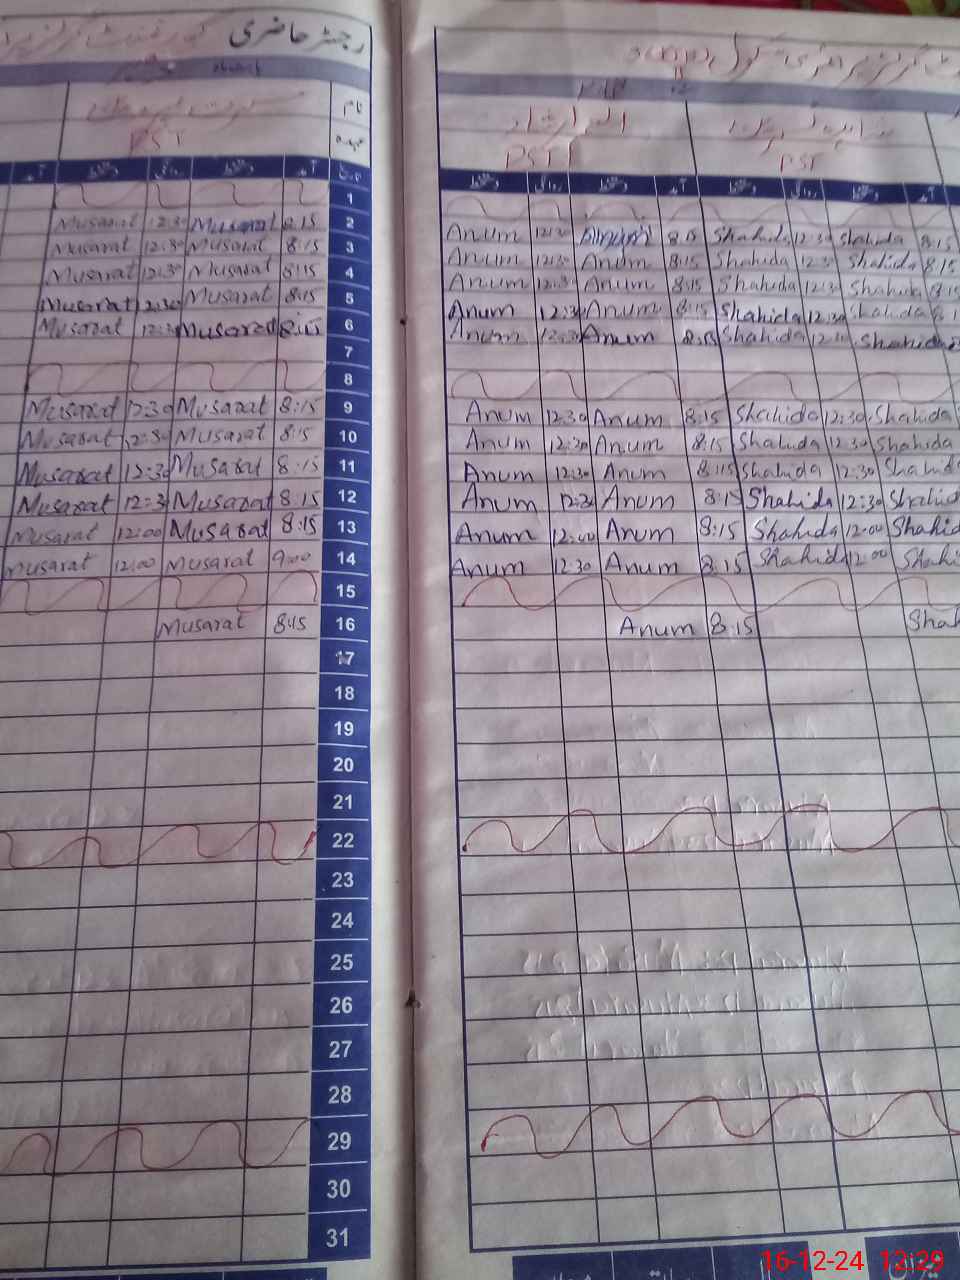 رجسٹر حاضری
نام
عہدہ
PST
تاریخ آمد دستخط روانگی دستخط آمد
1
2 8:15 Musarat 12:30 Musarat
3 8:15 Musarat 12:30 Musarat
4 8:15 Musarat 12:30 Musarat
5 8:15 Musarat 12:30 Musarat
6 8:15 Musarat 12:30 Musarat
7
8
9 8:15 Musarat 12:30 Musarat
10 8:15 Musarat 12:30 Musarat
11 8:15 Musarat 12:30 Musarat
12 8:15 Musarat 12:3 Musarat
13 8:15 Musarat 12:00 Musarat
14 9:00 Musarat 12:00 Musarat
15
16 8:15 Musarat
17
18
19
20
21
22
23
24
25
26
27
28
29
30
31
PST PST
آمد دستخط روانگی دستخط آمد دستخط روانگی دستخط
Anum 12:30 Anum 8:15 Shahida 12:30 Shahida 8:15
Anum 12:30 Anum 8:15 Shahida 12:30 Shahida 8:15
Anum 12:30 Anum 8:15 Shahida 12:30 Shahida 8:15
Anum 12:30 Anum 8:15 Shahida 12:30 Shahida 8:1
Anum 12:30 Anum 8:15 Shahida 12:30 Shahida
Anum 12:30 Anum 8:15 Shahida 12:30 Shahida
Anum 12:30 Anum 8:15 Shahida 12:30 Shahida
Anum 12:30 Anum 8:15 Shahida 12:30 Shahid
Anum 12:30 Anum 8:15 Shahida 12:30 Shahid
Anum 12:00 Anum 8:15 Shahida 12:00 Shahid
Anum 12:30 Anum 8:15 Shahida 12:00 Shahi
Anum 8:15 Shah
16-12-24 12:29